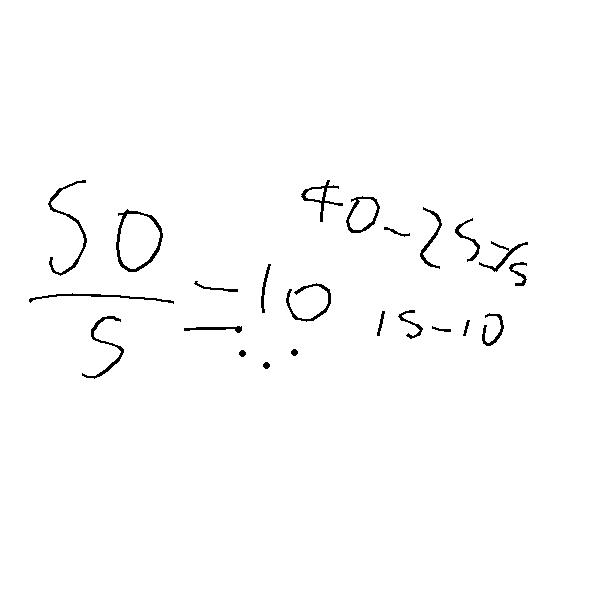 50
5
=10
40-25
15-10